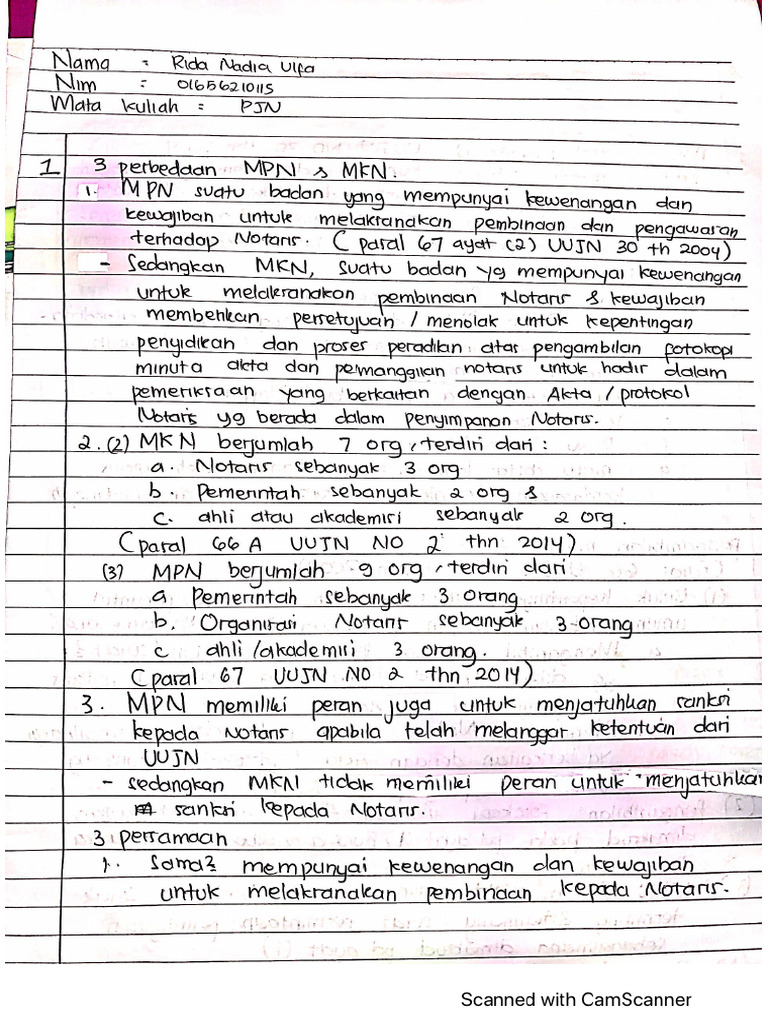 Nama : Rida Nadia Ulfa
Nim : 01656210115
Mata kuliah : PJN
1 3 perbedaan MPN & MKN.
1. MPN suatu badan yang mempunyai kewenangan dan
kewajiban untuk melaksanakan pembinaan dan pengawasan
terhadap Notaris. (pasal 67 ayat (2) UUJN 30 th 2004)
- Sedangkan MKN, suatu badan yg mempunyai kewenangan
untuk melaksanakan pembinaan Notaris & kewajiban
memberikan persetujuan / menolak untuk kepentingan
penyidikan dan proses peradilan atas pengambilan fotokopi
minuta akta dan pemanggilan notaris untuk hadir dalam
pemeriksaan yang berkaitan dengan Akta / protokol
Notaris yg berada dalam penyimpanan Notaris.
2. (2) MKN berjumlah 7 org, terdiri dari :
a. Notaris sebanyak 3 org
b. Pemerintah sebanyak 2 org &
c. ahli atau akademisi sebanyak 2 org.
(pasal 66 A UUJN NO 2 thn 2014)
(3) MPN berjumlah 9 org, terdiri dari
a Pemerintah sebanyak 3 orang
b. Organisasi Notaris sebanyak 3 orang
c ahli /akademisi 3 orang.
(pasal 67 UUJN NO 2 thn 2014)
3. MPN memiliki peran juga untuk menjatuhkan sanksi
kepada Notaris apabila telah melanggar ketentuan dari
UUJN
- sedangkan MKN tidak memiliki peran untuk menjatuhkan
sanksi kepada Notaris.
3 persamaan
1. Sama2 mempunyai kewenangan dan kewajiban
untuk melaksanakan pembinaan kepada Notaris.
Scanned with CamScanner